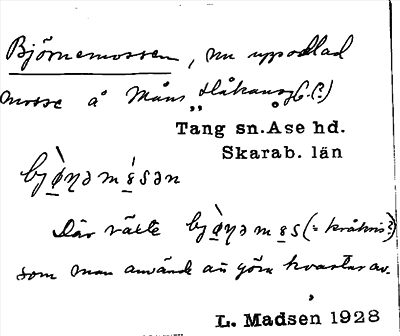 Björnemossen, nu uppodlad
mosse å Måns Håkansg (.?)
Tang sn. Åse hd.
Skarab. län
bjø̀ṇəmɵsən
Där växte bjø̀ṇəmɵs (= kråkris?)
som man använde att göra kvastar av.
L. Madsen 1928